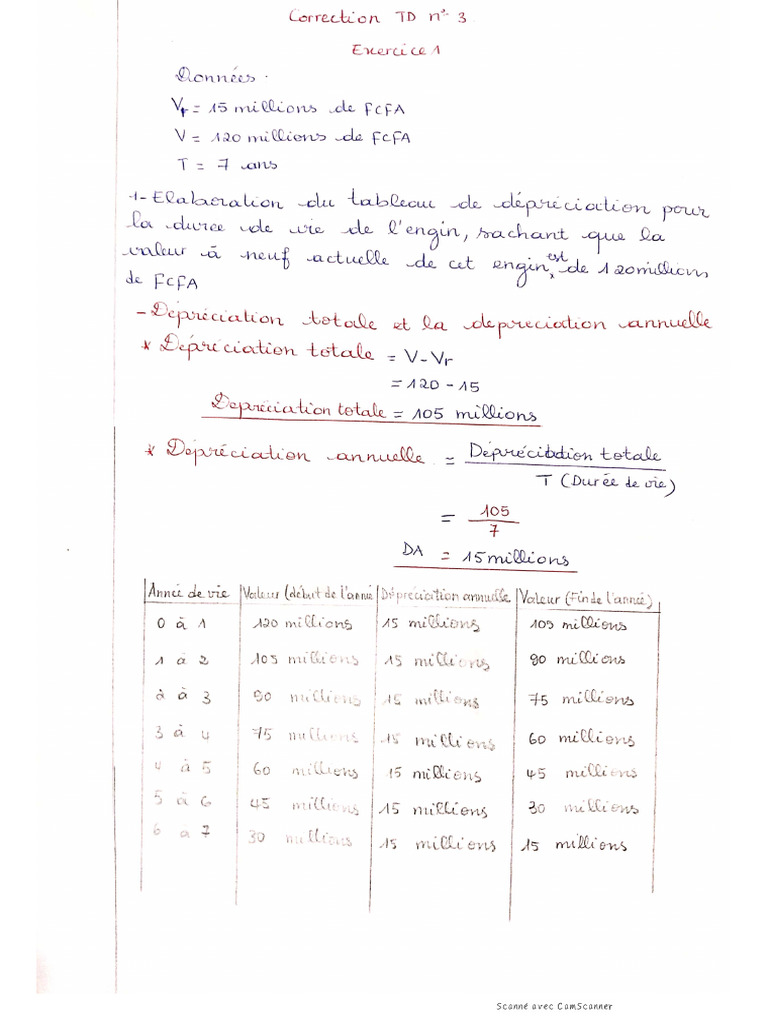 Correction TD n° 3
Exercice 1
Données.
Vr = 15 millions de FCFA
V = 120 millions de FCFA
T = 7 ans
1- Elaboration du tableau de dépréciation pour
la durée de vie de l'engin, sachant que la
valeur à neuf actuelle de cet engin est de 120 millions
de FCFA
- Dépréciation totale et la depreciation annuelle
* Dépréciation totale = V - Vr
= 120 - 15
Depréciation totale = 105 millions
* Dépréciation annuelle = Dépréciation totale / T (Durée de vie)
= 105 / 7
DA = 15 millions
Année de vie | Valeur (début de l'année | Dépréciation annuelle | Valeur (Fin de l'année)
0 à 1 | 120 millions | 15 millions | 105 millions
1 à 2 | 105 millions | 15 millions | 90 millions
2 à 3 | 90 millions | 15 millions | 75 millions
3 à 4 | 75 millions | 15 millions | 60 millions
4 à 5 | 60 millions | 15 millions | 45 millions
5 à 6 | 45 millions | 15 millions | 30 millions
6 à 7 | 30 millions | 15 millions | 15 millions
Scanné avec CamScanner